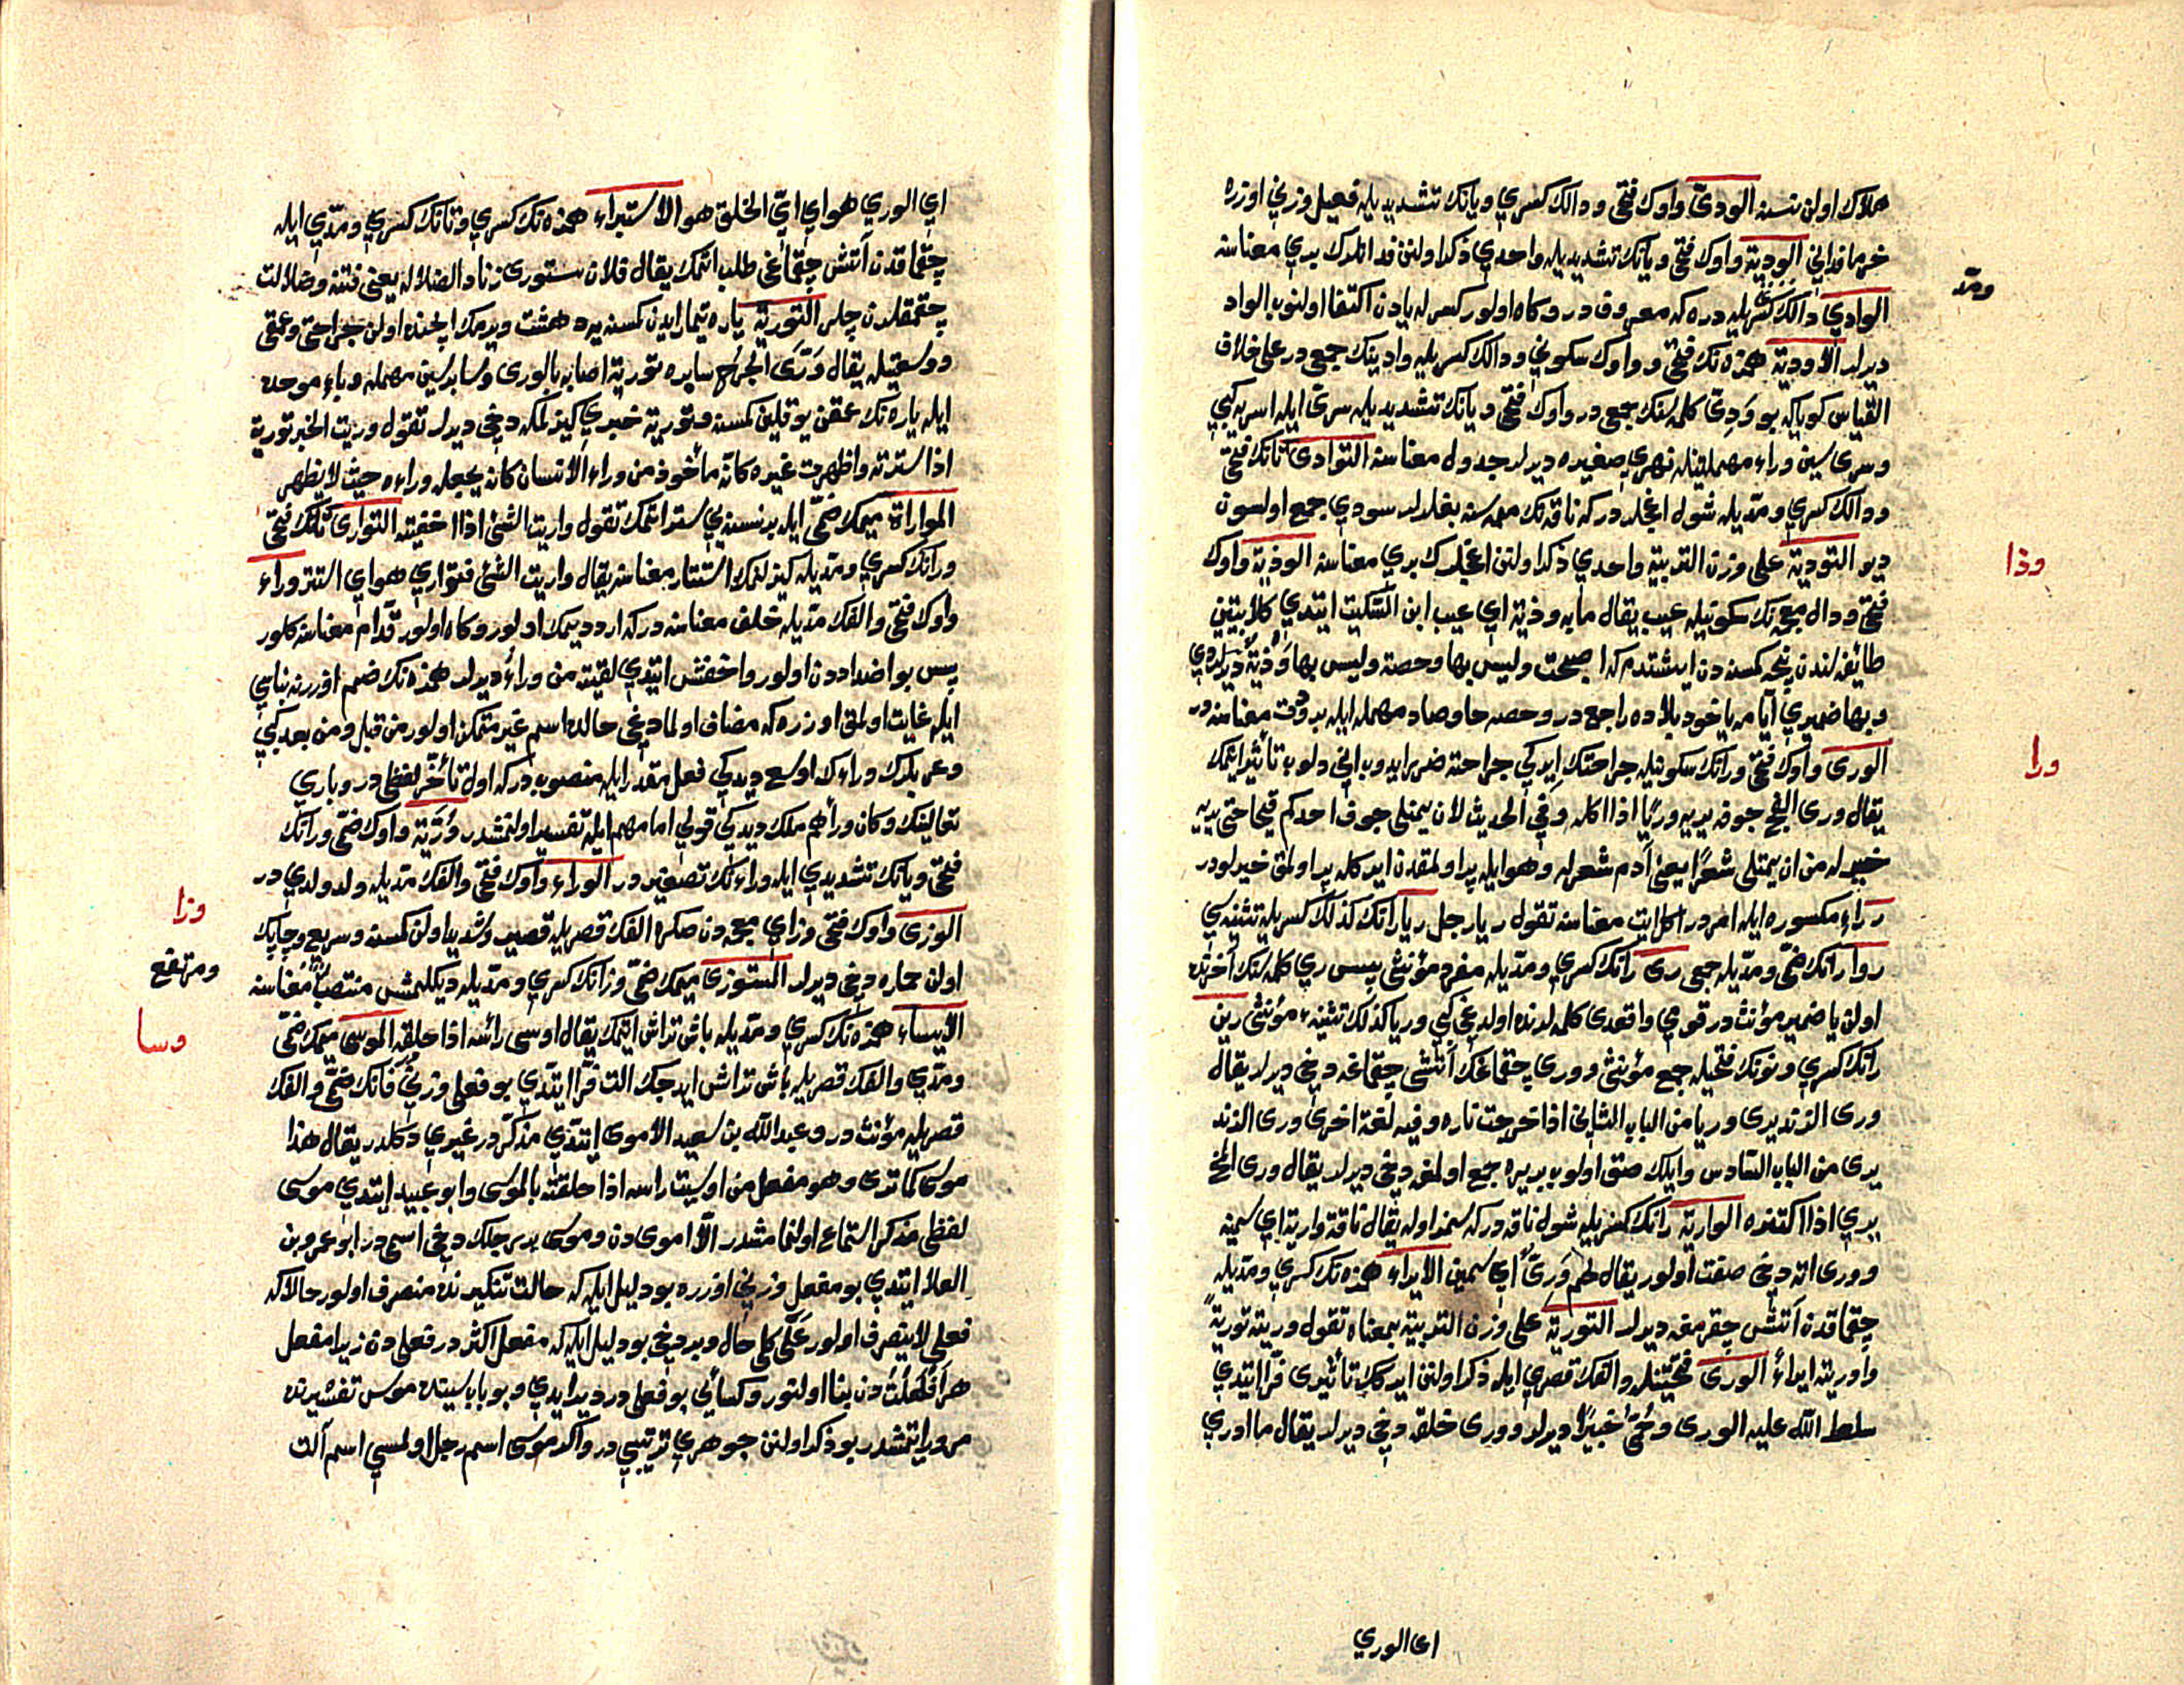 هلاك اولن نسنه الودىّ واوك فتحى ودالك كسرى ويانك تشديديله فعيل وزنى اوزره
خرما فدانى الودية واوك فتحى ويانك تشديديله واحدى ذكر اولنن فدانلرك برى معناسنه
ومدّ
الوادى دالك كسريله دره كه معروفدر وكاه اولور كسر له يادن اكتفا اولنوب الواد
ديرلر الاودية همزه نك فتحى وواوك سكونى ودالك كسريله وادينك جمعدر على خلاف
القياس كويا كه بو ودىّ كلمه سنك جمعدر واوك فتحى ويانك تشديديله سرىّ ايله اسريه كبى
وسرى سين وراء مهملتينله نهرى صغيره ديرلر جدول معناسنه التوادى تانك فتحى
ودالك كسرى ومدّيله شول اغجلردركه ناقه نك ممه سنه بغلرلر سودى جمع اولسون
ديو التودية على وزن التربية واحدى ذكر اولنن اغجلرك برى معناسنه الوذية واوك
وذا
فتحى وذال معجمه نك سكونيله عيب يقال مابه وذية اى عيب ابن السّكيت ايتدى كلابيتين
طائفه لرندن نيجه كمسنه دن ايشتدم كه اصبحت وليس بها وحصة وليس بها وذية ديرلردى
وبها ضميرى ايامه ياخود بلاده راجعدر وحصه حا وصاد مهمله ايله برد وقت معناسنه در
الورى واوك فتحى ورانك سكونيله جراحتك ايركى جراحته ضرر ايدوب انى دلوب تأثير ايتمك
ورا
يقال ورى القيح جوفه يريه وريًا اذا اكله وفى الحديث لان يمتلى جوف احدكم قيحا حتى يريه
خير له من ان يمتلى شعرًا يعنى آدم شعرله وهوا ايله پر اولمقدن ايركله پر اولمق خيرلودر
رِ راء مكسوره ايله امردر اكل ايت معناسنه تقول ر يا رجل ريا رانك كذلك كسريله تثنيه سى
روا رانك ضمّى ومدّيله جمعى رى رانك كسرى ومدّيله مفرد مؤنثى پس رى كلمه سنك آخرنده
اولن يا ضمير مؤنثدر قومى واقعدى كلمه لرنده اولدغى كبى وريا كذلك تثنيهء مؤنثى رين
رانك كسرى ونونك فتحيله جمع مؤنثى وورى چقماغك آتشى چقماغه دخى ديرلر يقال
ورى الزند يرى وريا من الباب الثانى اذا خرجت ناره وفيه لغة اخرى ورى الزند
يرى من الباب السّادس وايلك صتق اولوب بريره جمع اولمغه دخى ديرلر يقال ورى المخ
يرى اذا اكتنز الوارية رانك كسريله شول ناقه دركه سمز اوله يقال ناقة وارية اى سمينة
وورى اته دخى صفت اولور يقال لحم ورىّ اى سمين الايراء همزه نك كسرى ومدّيله
چقماقدن آتش چقرمغه ديرلر التورية على وزن التربية بمعناه تقول وريته تورية
واوريته ايراءً الورى فتحتينله والفك قصرى ايله ذكر اولنن ايركك تأثيرى فرّا ايتدى
سلط الله عليه الورى وحمّى خيبرا ديرلر وورى خلقه دخى ديرلر يقال ما ادرى
اى الورى
اى الورى هو اى اىّ الخلق هو الاستيراء همزه نك كسرى وتانك كسرى ومدّى ايله
چقماقدن آتش چقماغى طلب اتمك يقال فلان يستورى زناد الضلاله يعنى فتنه وضلالت
چقمقلرن چلر التورية ياره تيمار ايدن كمسنه يه دهشت ويرمك ايچنده اولن جراحتى وعمقى
ووسعتيله يقال ورّى الجرح سابره تورية اصابه بالورى وسابر سين مهمله وباء موحده
ايله ياره نك عمقن يوقلين كمسنه وتورية خبرى كيزلمكه دخى ديرلر تقول وريت الخبر تورية
اذا سترته واظهرت غيره كانّه مأخوذ من وراء الانسان كانه يجعله وراءه حيث لا يظهر
المواراة ميمك ضمّى ايله بر نسنه يى ستر اتمك تقول واريت الشئ اذا اخفيته التوارى تانك فتحى
ورانك كسرى ومدّيله كيزلنمك استتار معناسنه يقال واريت الشئ فتوارى هو اى استتر وراء
واوك فتحى والفك مدّيله خلف معناسنه دركه ارد ديمك اولور وكاه اولور قدّام معناسنه كلور
پس بو اضداددن اولور واخفش ايتدى لقيته من وراءُ ديرلر همزه نك ضمّ اوزرنه بناسى
ايله غايت اولمق اوزره كه مضاف اولمادغى حالده اسم غير متمكن اولور من قبل ومن بعد كبى
وعربلرك وراءك اوسع ديدكى فعل مقدر ايله منصوبدركه اول تأخّر لفظيدر وبارى
تعالينك وكان وراءهم ملك ديدكى قولى امامهم ايله تفسير اولنمشدر وُرَيّة واوك ضمّى ورانك
فتحى ويانك تشديدى ايله وراءنك تصغيريدر الوراء واوك فتحى والفك مدّيله ولد ولدىدر
الوزى واوك فتحى وزاى معجمه دن صكره الفك قصريله قصير وشديد اولن كمسنه وسريع وچابك
وزا
اولن حماره دخى ديرلر المستوزى ميمك ضمّى وزانك كسرى ومدّيله ديكلمش منتصب معناسنه
ومرتفع
الايساء همزه نك كسرى ومدّيله باش تراش ايتمك يقال اوسى رأسه اذا حلقه الموسى ميمك ضمّى
وسا
ومدّى والفك قصريله باش تراش ايدجك الت فرّا ايتدى بو فعلى وزنى فانك ضمّى والفك
قصريله مؤنثدر وعبد الله بن سعيد الاموى ايتدى مذكّردر غيرى دكلدر يقال هذا
موسى كما ترى وهو مفعل من اوسيت راسه اذا حلقته بالموسى وابو عبيد ايتدى موسى
لفظى مذكر استماع اولنمامشدر الّا امويدن وموسى بر رجلك دخى اسمىدر ابو عمرو بن
العلا ايتدى بو مفعل وزنى اوزره بو دليل ايله كه حالت تنكيرنده منصرف اولور حالا كه
فعلى لا ينصرف اولور على كل حال وبر دخى بو دليل ايله كه مفعل اكثردر فعلى دن زيرا مفعل
هر افعلت دن بنا اولنور وكسائى بو فعلى در ديرايدى وبو باب سيننده موس تفسيرنده
مرور ايتمشدر بو ذكر اولنن جوهرى ترتيبىدر واكر موسى اسم رجل اولمسى اسم آلت